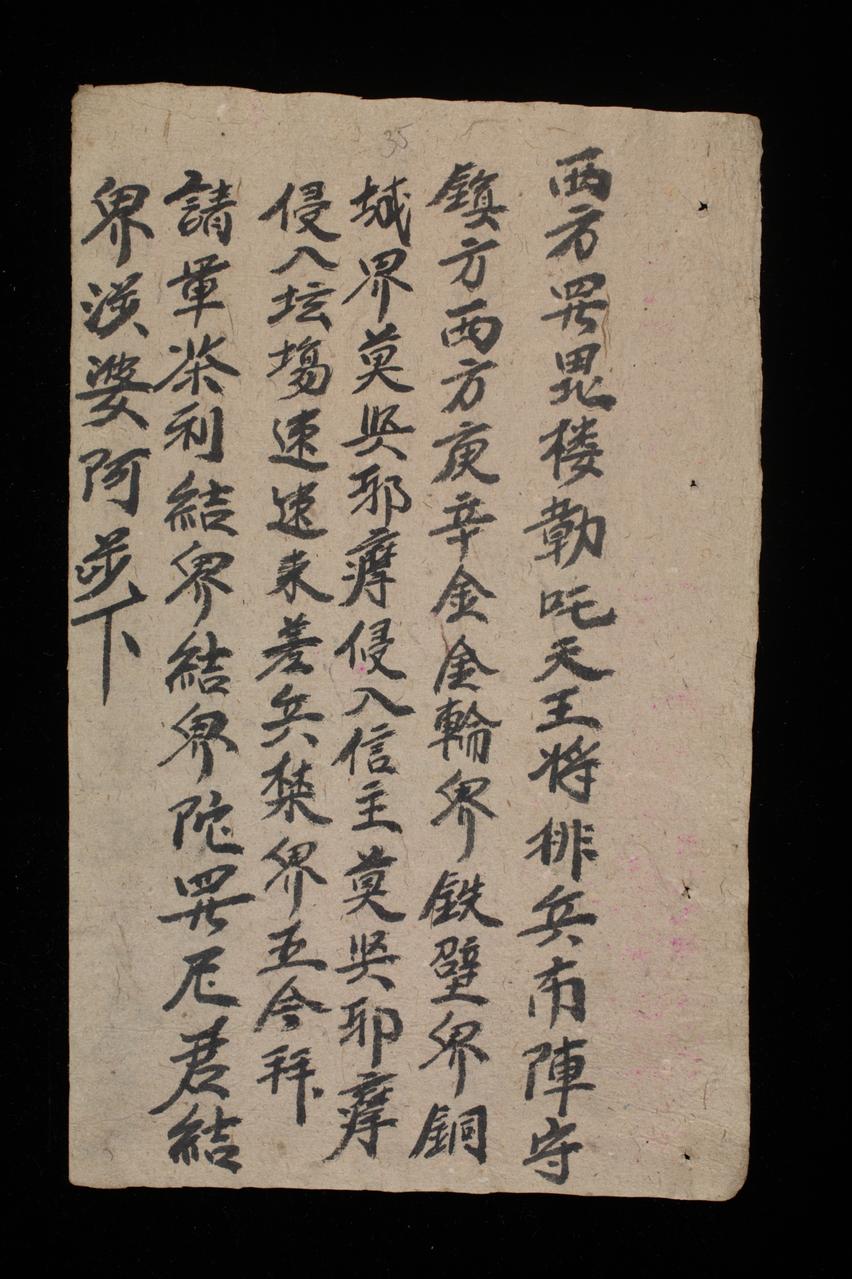 西方毘楼勒吒天王将排兵布陣守
鎮方西方庚辛金金輪界鉄壁界銅
城界莫吳耶魔侵入信主莫吳耶魔
侵入坛場速速来差兵禁界五今拜
請軍茶利結界結界陀羅尼君結
界娑婆阿步下
35